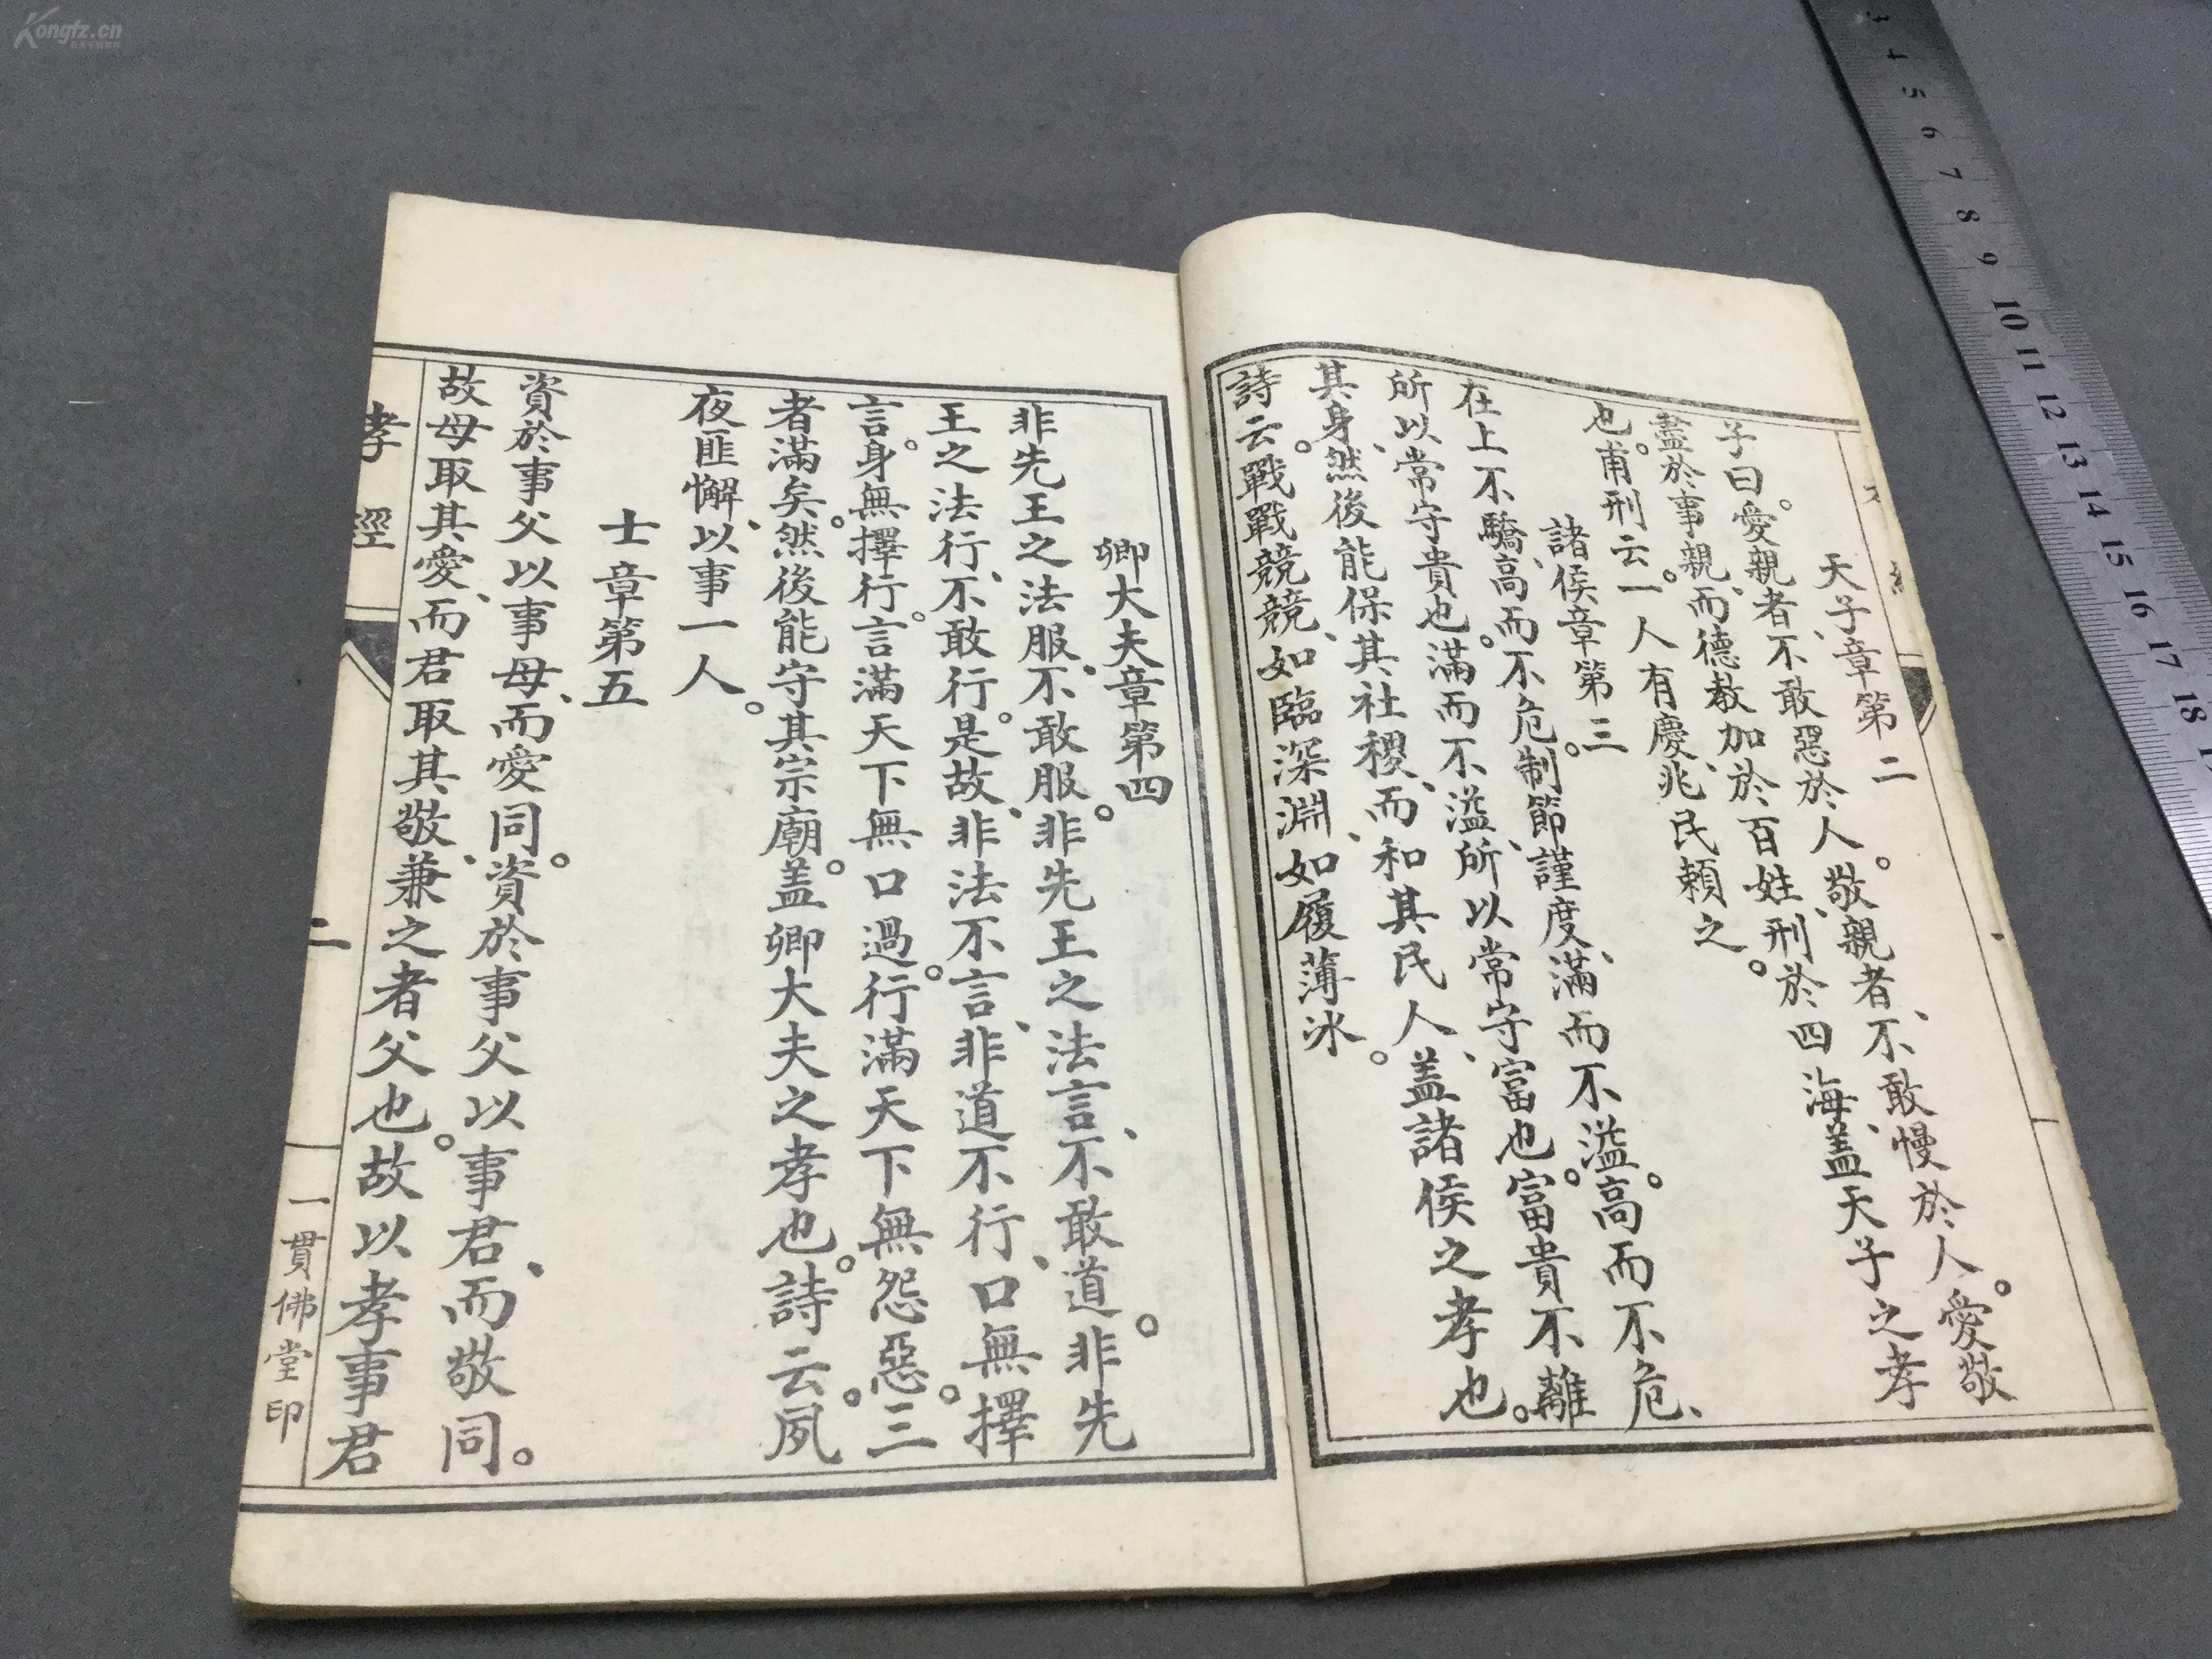 天子章第二
子曰。愛親者、不敢惡於人。敬親者、不敢慢於人。愛敬
盡於事親、而德教加於百姓、刑於四海、蓋天子之孝
也。甫刑云。一人有慶、兆民賴之。
諸侯章第三
在上不驕、高而不危。制節謹度、滿而不溢。高而不危、
所以常守貴也。滿而不溢、所以常守富也。富貴不離
其身、然後能保其社稷、而和其民人、蓋諸侯之孝也。
詩云。戰戰競競、如臨深淵、如履薄冰。
卿大夫章第四
非先王之法服、不敢服。非先王之法言、不敢道。非先
王之法行、不敢行。是故、非法不言、非道不行、口無擇
言。身無擇行。言滿天下無口過。行滿天下無怨惡。三
者滿矣。然後能守其宗廟。蓋卿大夫之孝也。詩云。夙
夜匪懈、以事一人。
士章第五
資於事父以事母、而愛同。資於事父以事君、而敬同。
故母取其愛、而君取其敬、兼之者父也。故以孝事君
孝經
二
一貫佛堂印
Kongfz.cn
3 4 5 6 7 8 9 10 11 12 13 14 15 16 17 18